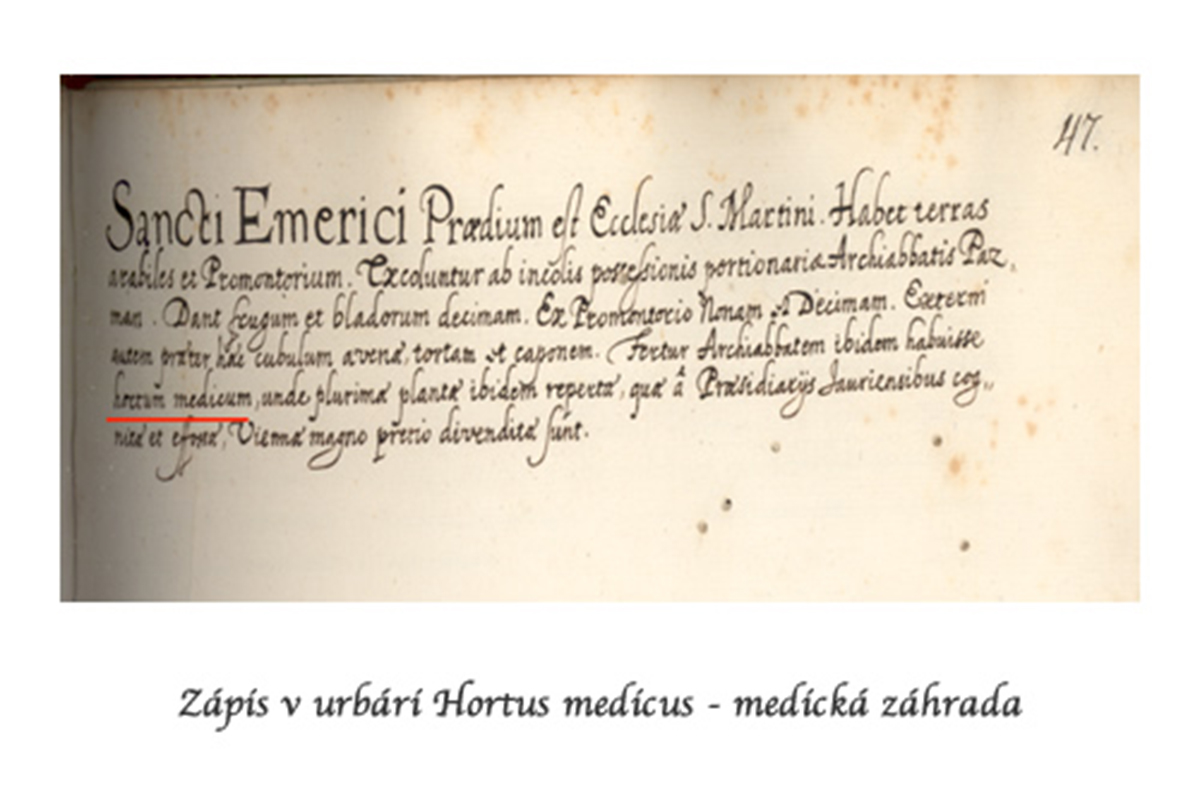 47.
Sancti Emerici Prædium est Ecclesiæ S. Martini. Habet terras
arabiles et Promontorium. Excoluntur ab incolis possessionis portionariæ Archiabbatis Paz,,
man. Dant frugum et bladorum decimam. Ex Promontorio Nonam et Decimam. Extermi
autem præter hæc cubulum avenæ, tortam et caponem. Fertur Archiabbatem ibidem habuisse
hortum medicum, unde plurimæ plantæ ibidem repertæ, quæ â Præsidiarijs Jauriensibus cog,,
nitæ et efossæ, Viennæ magno pretio divenditæ sunt.
Zápis v urbári Hortus medicus - medická záhrada